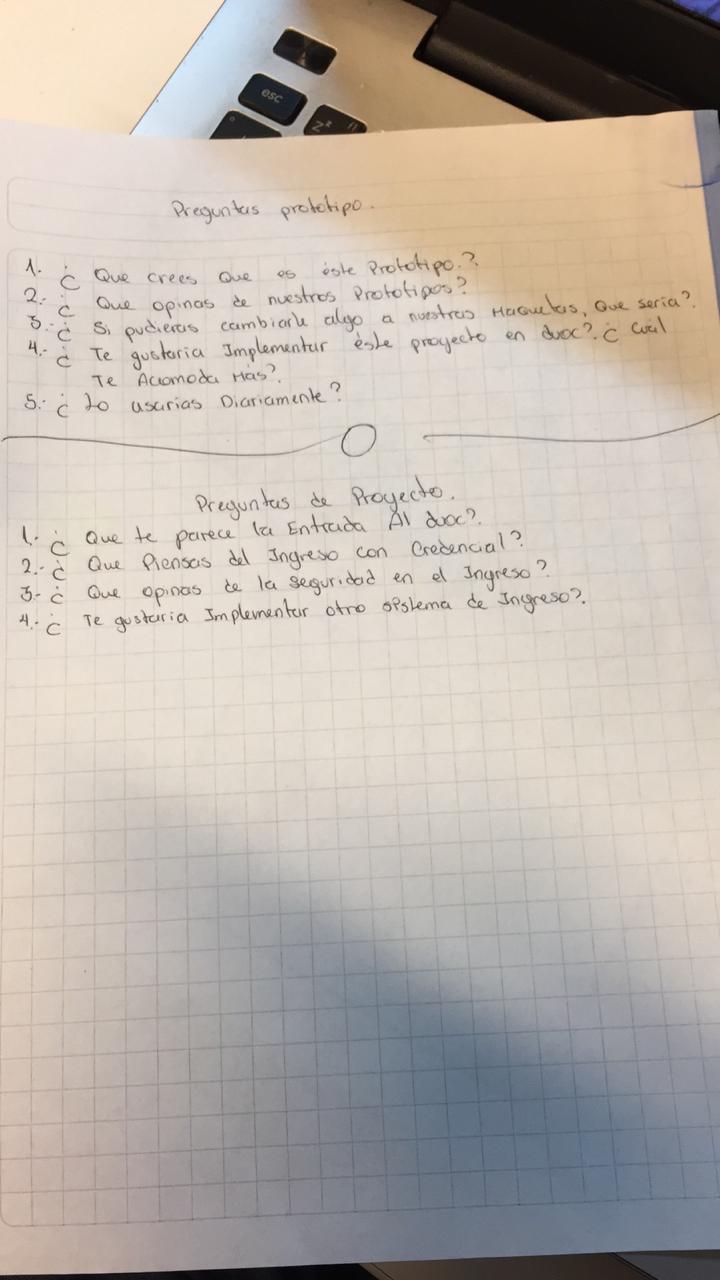 esc
Preguntas prototipo.
1.- ¿ Que crees Que es éste Prototipo.?
2.- ¿ Que opinas de nuestros Prototipos?
3.- ¿ Si pudieras cambiarle algo a nuestras Maquetas, Que seria?.
4.- ¿ Te gustaria Implementar éste proyecto en duoc?. ¿ Cuál
Te Acomoda Más?.
5.- ¿ Lo usarias Diariamente?
Preguntas de Proyecto.
1.- ¿ Que te parece la Entrada Al duoc?.
2.- ¿ Que Piensas del Ingreso con Credencial?
3.- ¿ Que opinas de la seguridad en el Ingreso?
4.- ¿ Te gustaria Implementar otro sistema de Ingreso?.